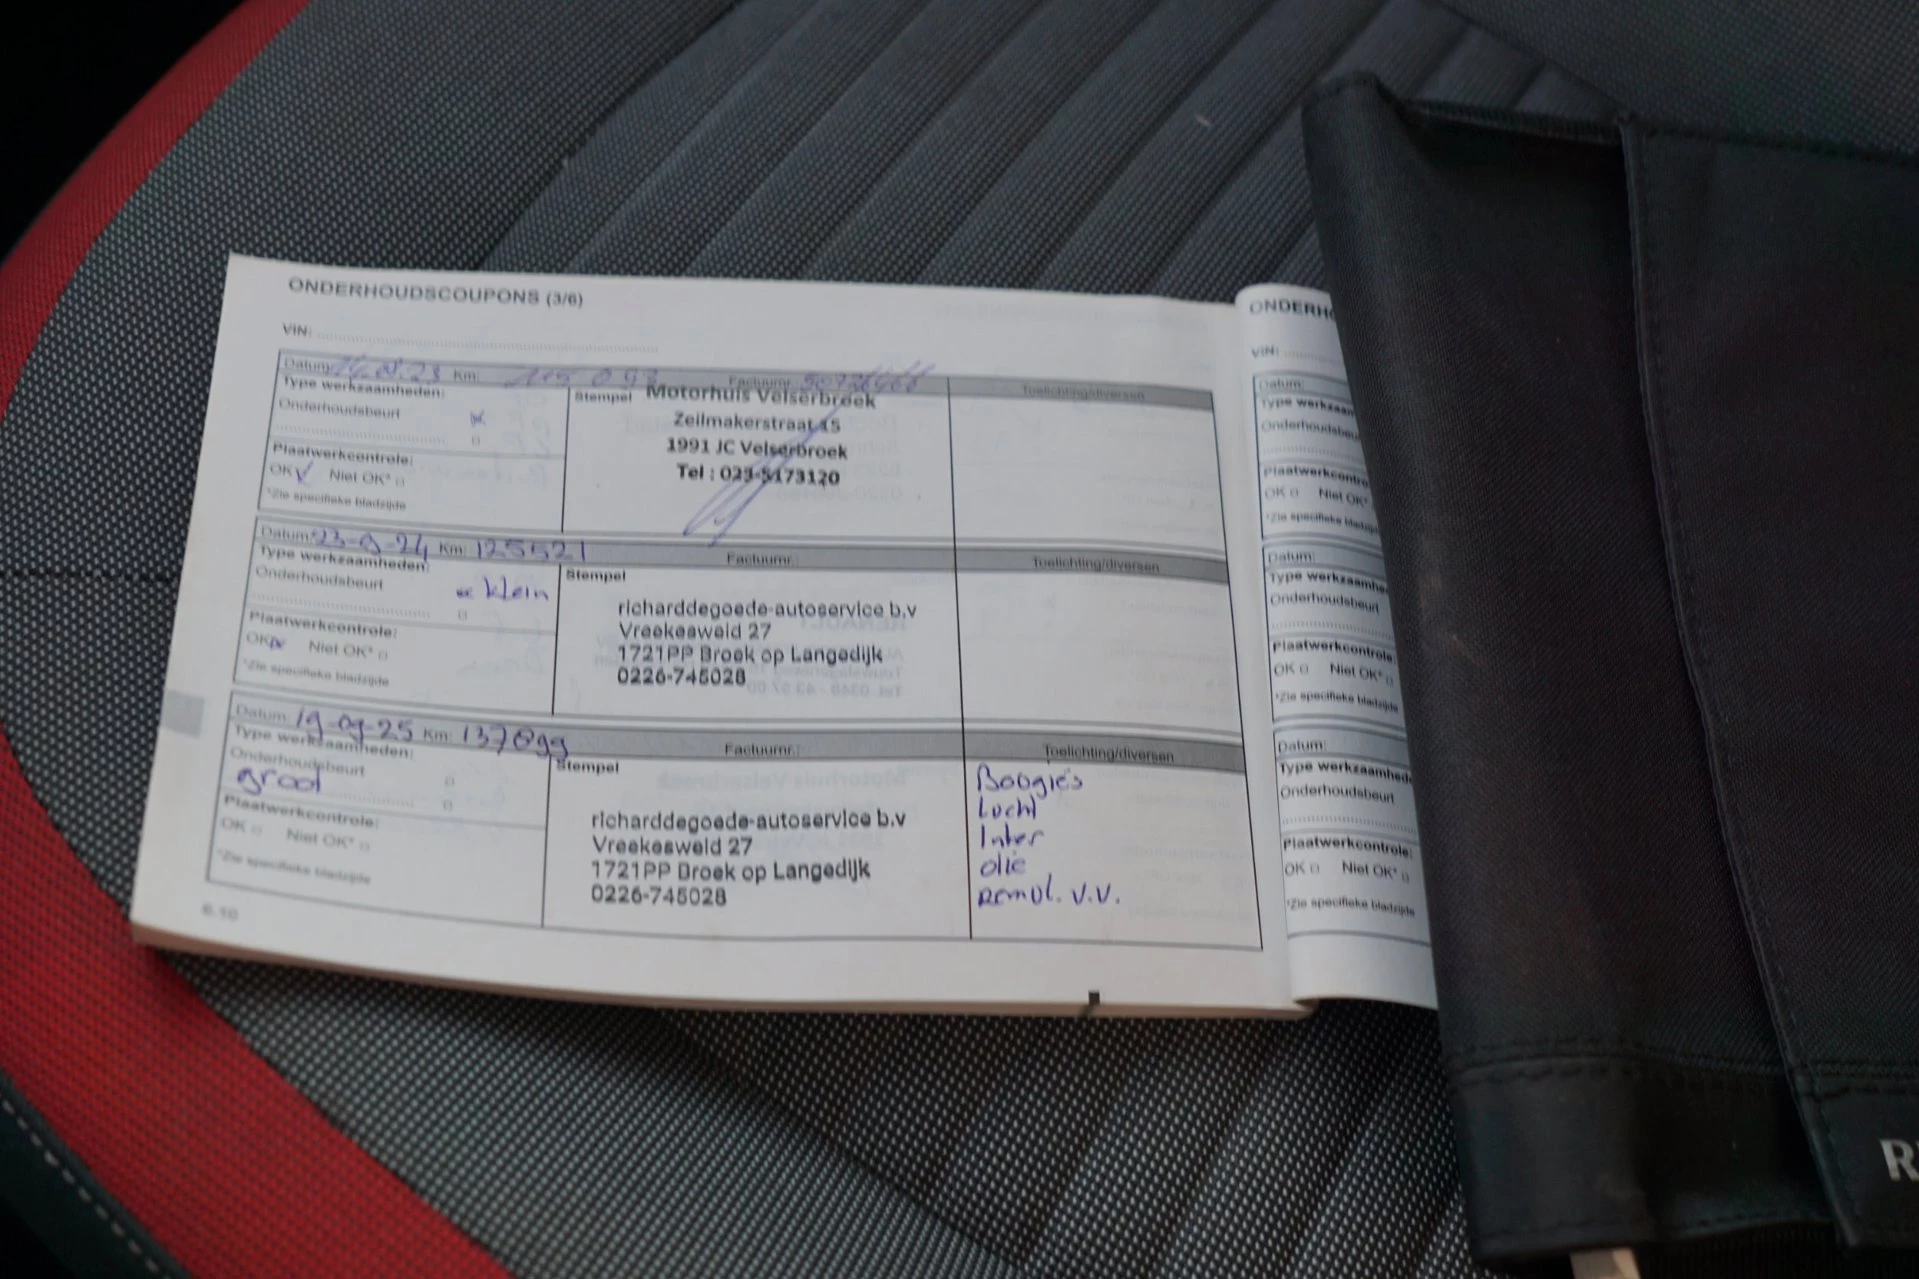 ONDERHOUDSCOUPONS (3/6)
VIN:
Datum: Km: 115 093 Factuurnr.:
Type werkzaamheden:
Onderhoudsbeurt
Plaatwerkcontrole:
OK Niet OK*
*Zie specifieke bladzijde
Stempel
Motorhuis Velserbroek
Zeilmakerstraat 15
1991 JC Velserbroek
Tel : 023-5173120
Toelichting/diversen
Datum: 23-9-24 Km: 125521 Factuurnr.:
Type werkzaamheden:
Onderhoudsbeurt klein
Plaatwerkcontrole:
OK Niet OK*
*Zie specifieke bladzijde
Stempel
richarddegoede-autoservice b.v
Vreekesweid 27
1721PP Broek op Langedijk
0226-745028
Toelichting/diversen
Datum: 19-09-25 Km: Factuurnr.:
Type werkzaamheden:
Onderhoudsbeurt
groot
Plaatwerkcontrole:
OK Niet OK*
*Zie specifieke bladzijde
Stempel
richarddegoede-autoservice b.v
Vreekesweid 27
1721PP Broek op Langedijk
0226-745028
Toelichting/diversen
Boogies
Lucht
Inter
olie
remvl. v.v.
6.10
ONDERHO
VIN:
Datum:
Type werkzaam
Onderhoudsbeu
Plaatwerkcontro
OK Niet OK*
*Zie specifieke bladzij
Datum:
Type werkzaamhe
Onderhoudsbeurt
Plaatwerkcontrole:
OK Niet OK*
*Zie specifieke bladzijde
Datum:
Type werkzaamhed
Onderhoudsbeurt
Plaatwerkcontrole:
OK Niet OK*
*Zie specifieke bladzijde
R